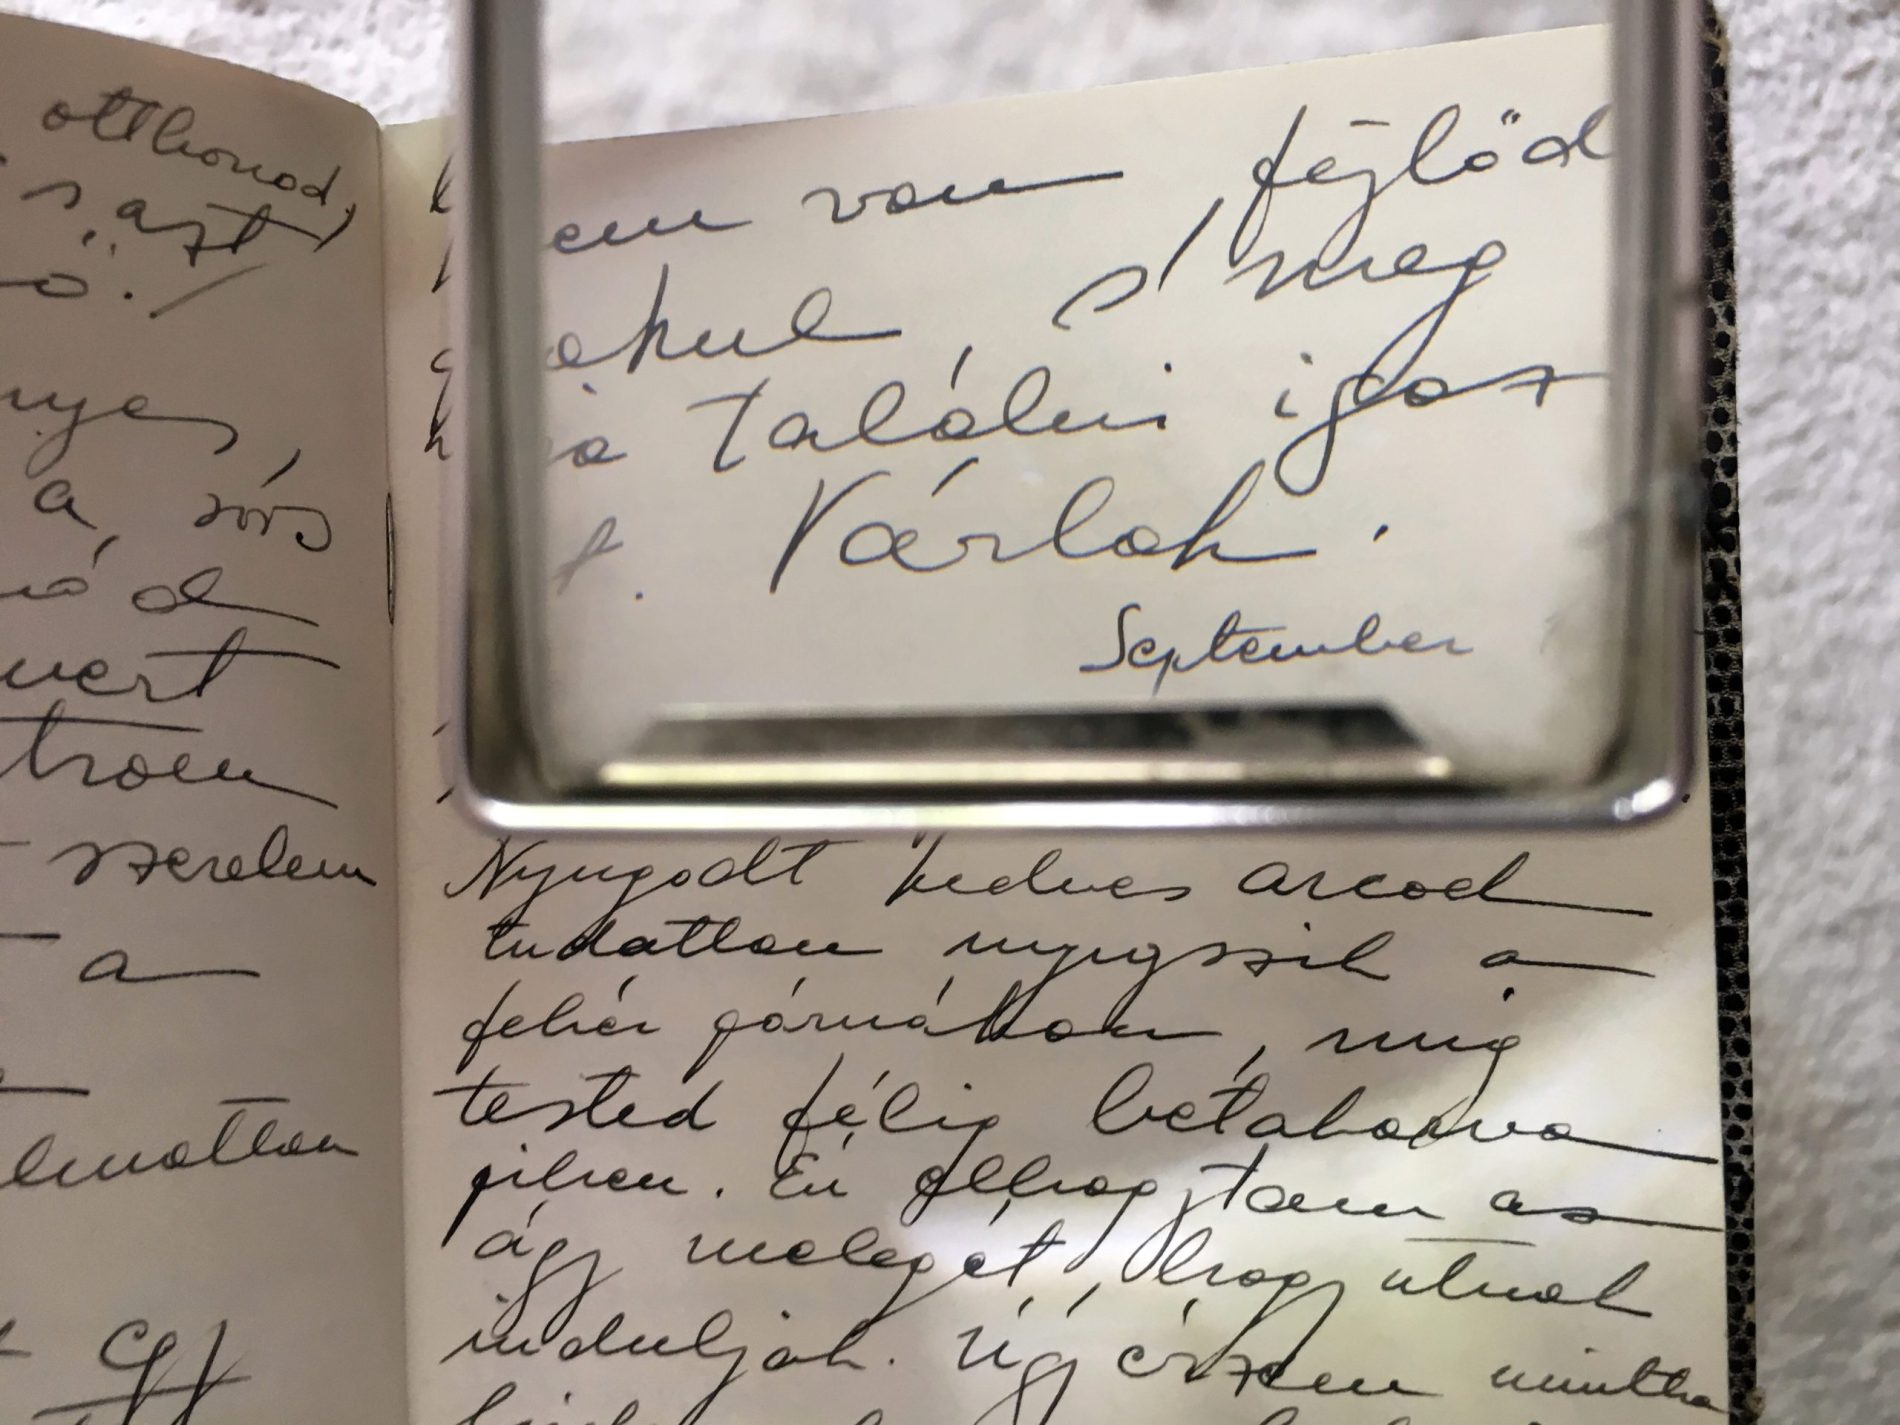 otthonod,
s azt
ő.
nyes,
a, sors
ód
mert
szerelem
a
egy
van, fejlőd
s meg
találni igaz
Várlak.
September
Nyugodt kedves arcod
tudatlan nyugszik a
fehér párnákon, míg
tested félig betakarva
pihen. Én elhagytam az
ágy melegét, hogy utnak
induljak. Úgy érzem mintha